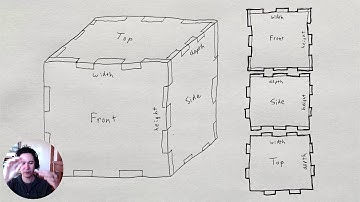 Top
width
depth
Front
height
Side
width
Front
height
depth
Side
height
width
Top
depth